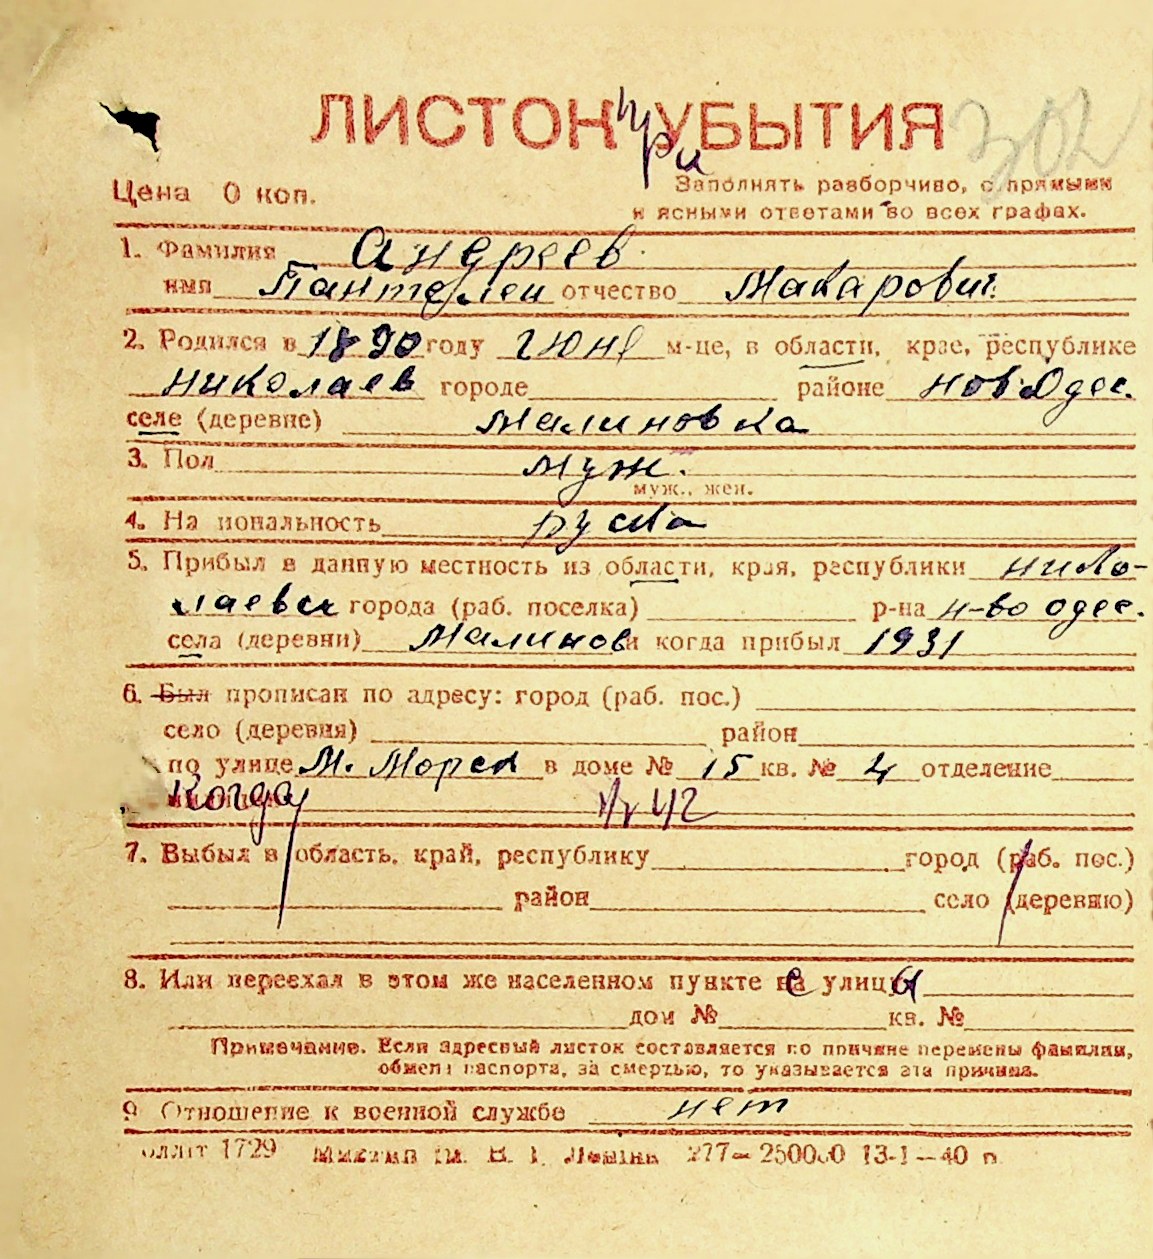 ЛИСТОК при УБЫТИЯ 302
Цена 0 коп.
Заполнять разборчиво, с прямыми
и ясными ответами во всех графах.
1. Фамилия Андреев
имя Пантелеи отчество Макарович
2. Родился в 1890 году июне м-це, в области, крае, республике
Николаев городе районе Нов Одес.
селе (деревне) Малиновка
3. Пол муж.
муж., жен.
4. Национальность руска
5. Прибыл в данную местность из области, края, республики нико-
лаевск города (раб. поселка) р-на н-во одес.
села (деревни) Малиновки когда прибыл 1931
6. Был прописан по адресу: город (раб. пос.)
село (деревня) район
по улице М. Морск в доме № 15 кв. № 4 отделение
Когда 42
7. Выбыл в область, край, республику город (раб. пос.)
район село (деревню)
8. Или переехал в этом же населенном пункте с улицы
дом № кв. №
Примечание. Если адресный листок составляется по причине перемены фамилии,
обмена паспорта, за смертью, то указывается эта причина.
9 Отношение к военной службе нет
1729 277— 250000 13-1—40 п.